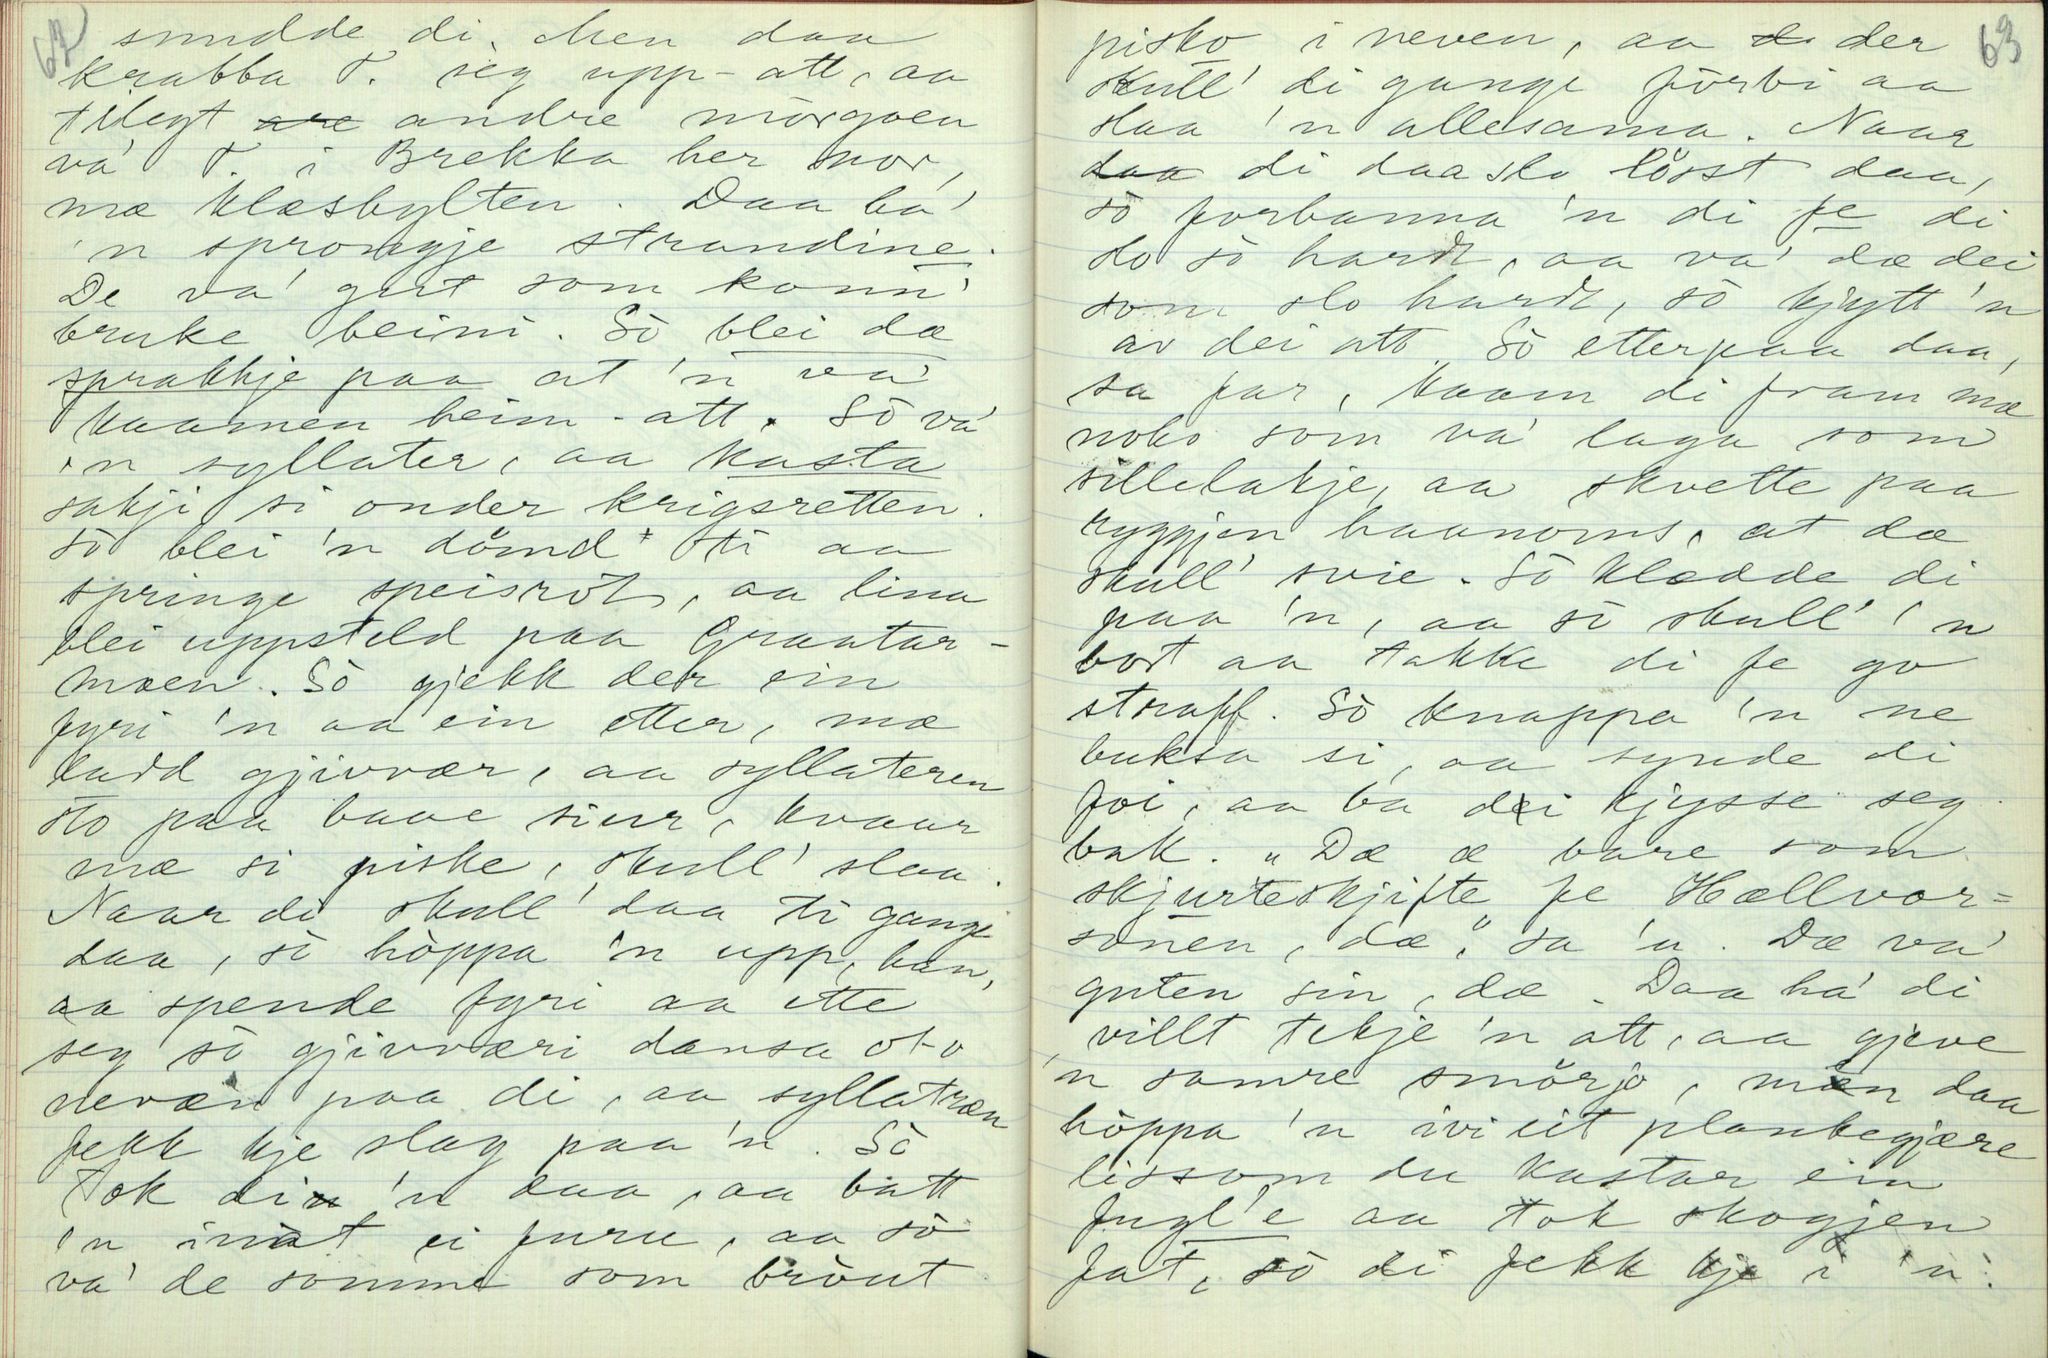 62
snudde di. Men daa
krabba T. seg upp-att, aa
tilegt are andre mòrgoen
va' T. i Brekka her nor,
mæ klæsbylten. Daa ha'
'n sprongje strandine.
De va' gut som konn'
bruke beini. Sò blei dæ
sprakkje paa at 'n va'
kaamen heim-att. Sò va'
'n syllater, aa kasta
sakji si onder krigsretten.
Sò blei 'n dömd ti aa
springe speisròt, aa lina
blei uppsteld paa Graatar-
moen. Sò gjekk der ein
fyri 'n aa ein etter, mæ
ladd gjivvær, aa syllateren
sto paa baae siur, kvaar
mæ si piske, skull' slaa.
Naar di skull' daa ti gange
daa, sò hòppa 'n upp, han,
aa spende fyri aa ette
seg sò gjivværi dansa oto
nevæn paa di, aa syllatræn
fekk kje slag paa 'n. Sò
tok di 'n daa, aa batt
'n innåt ei furu, aa sò
va' de somme som bròut
63
pisko i neven, aa di der
skull' di gange fòrbi aa
slaa 'n allesama. Naar
daa di daa slo löst daa,
sò forbanna 'n di fe di
slo sò hardt, aa va' dæ dei
som slo hardt, sò kjytt 'n
av dei att. Sò etterpaa daa,
sa far, kaam di fram mæ
noko som va' laga som
sillelakje, aa skvette paa
ryggjen haanoms, at dæ
skull' svie. Sò klædde di
paa 'n, aa sò skull' 'n
bort aa takke di fe go
straff. Sò knappa 'n ne
buksa si, aa synde di
foi, aa ba dei kjysse seg
bak. "Dæ æ bare som
skjurteskjifte fe Hællvor-
sonen, dæ," sa 'n. Dæ va'
guten sin, dæ. Daa ha' di
villt tekje 'n att, aa gjeve
'n samre smörjo, men daa
hòppa 'n ivi eit plankegjære
lissom du kastar ein
fugl'e aa tok skogjen
fat, sò di fekk kje i 'n.